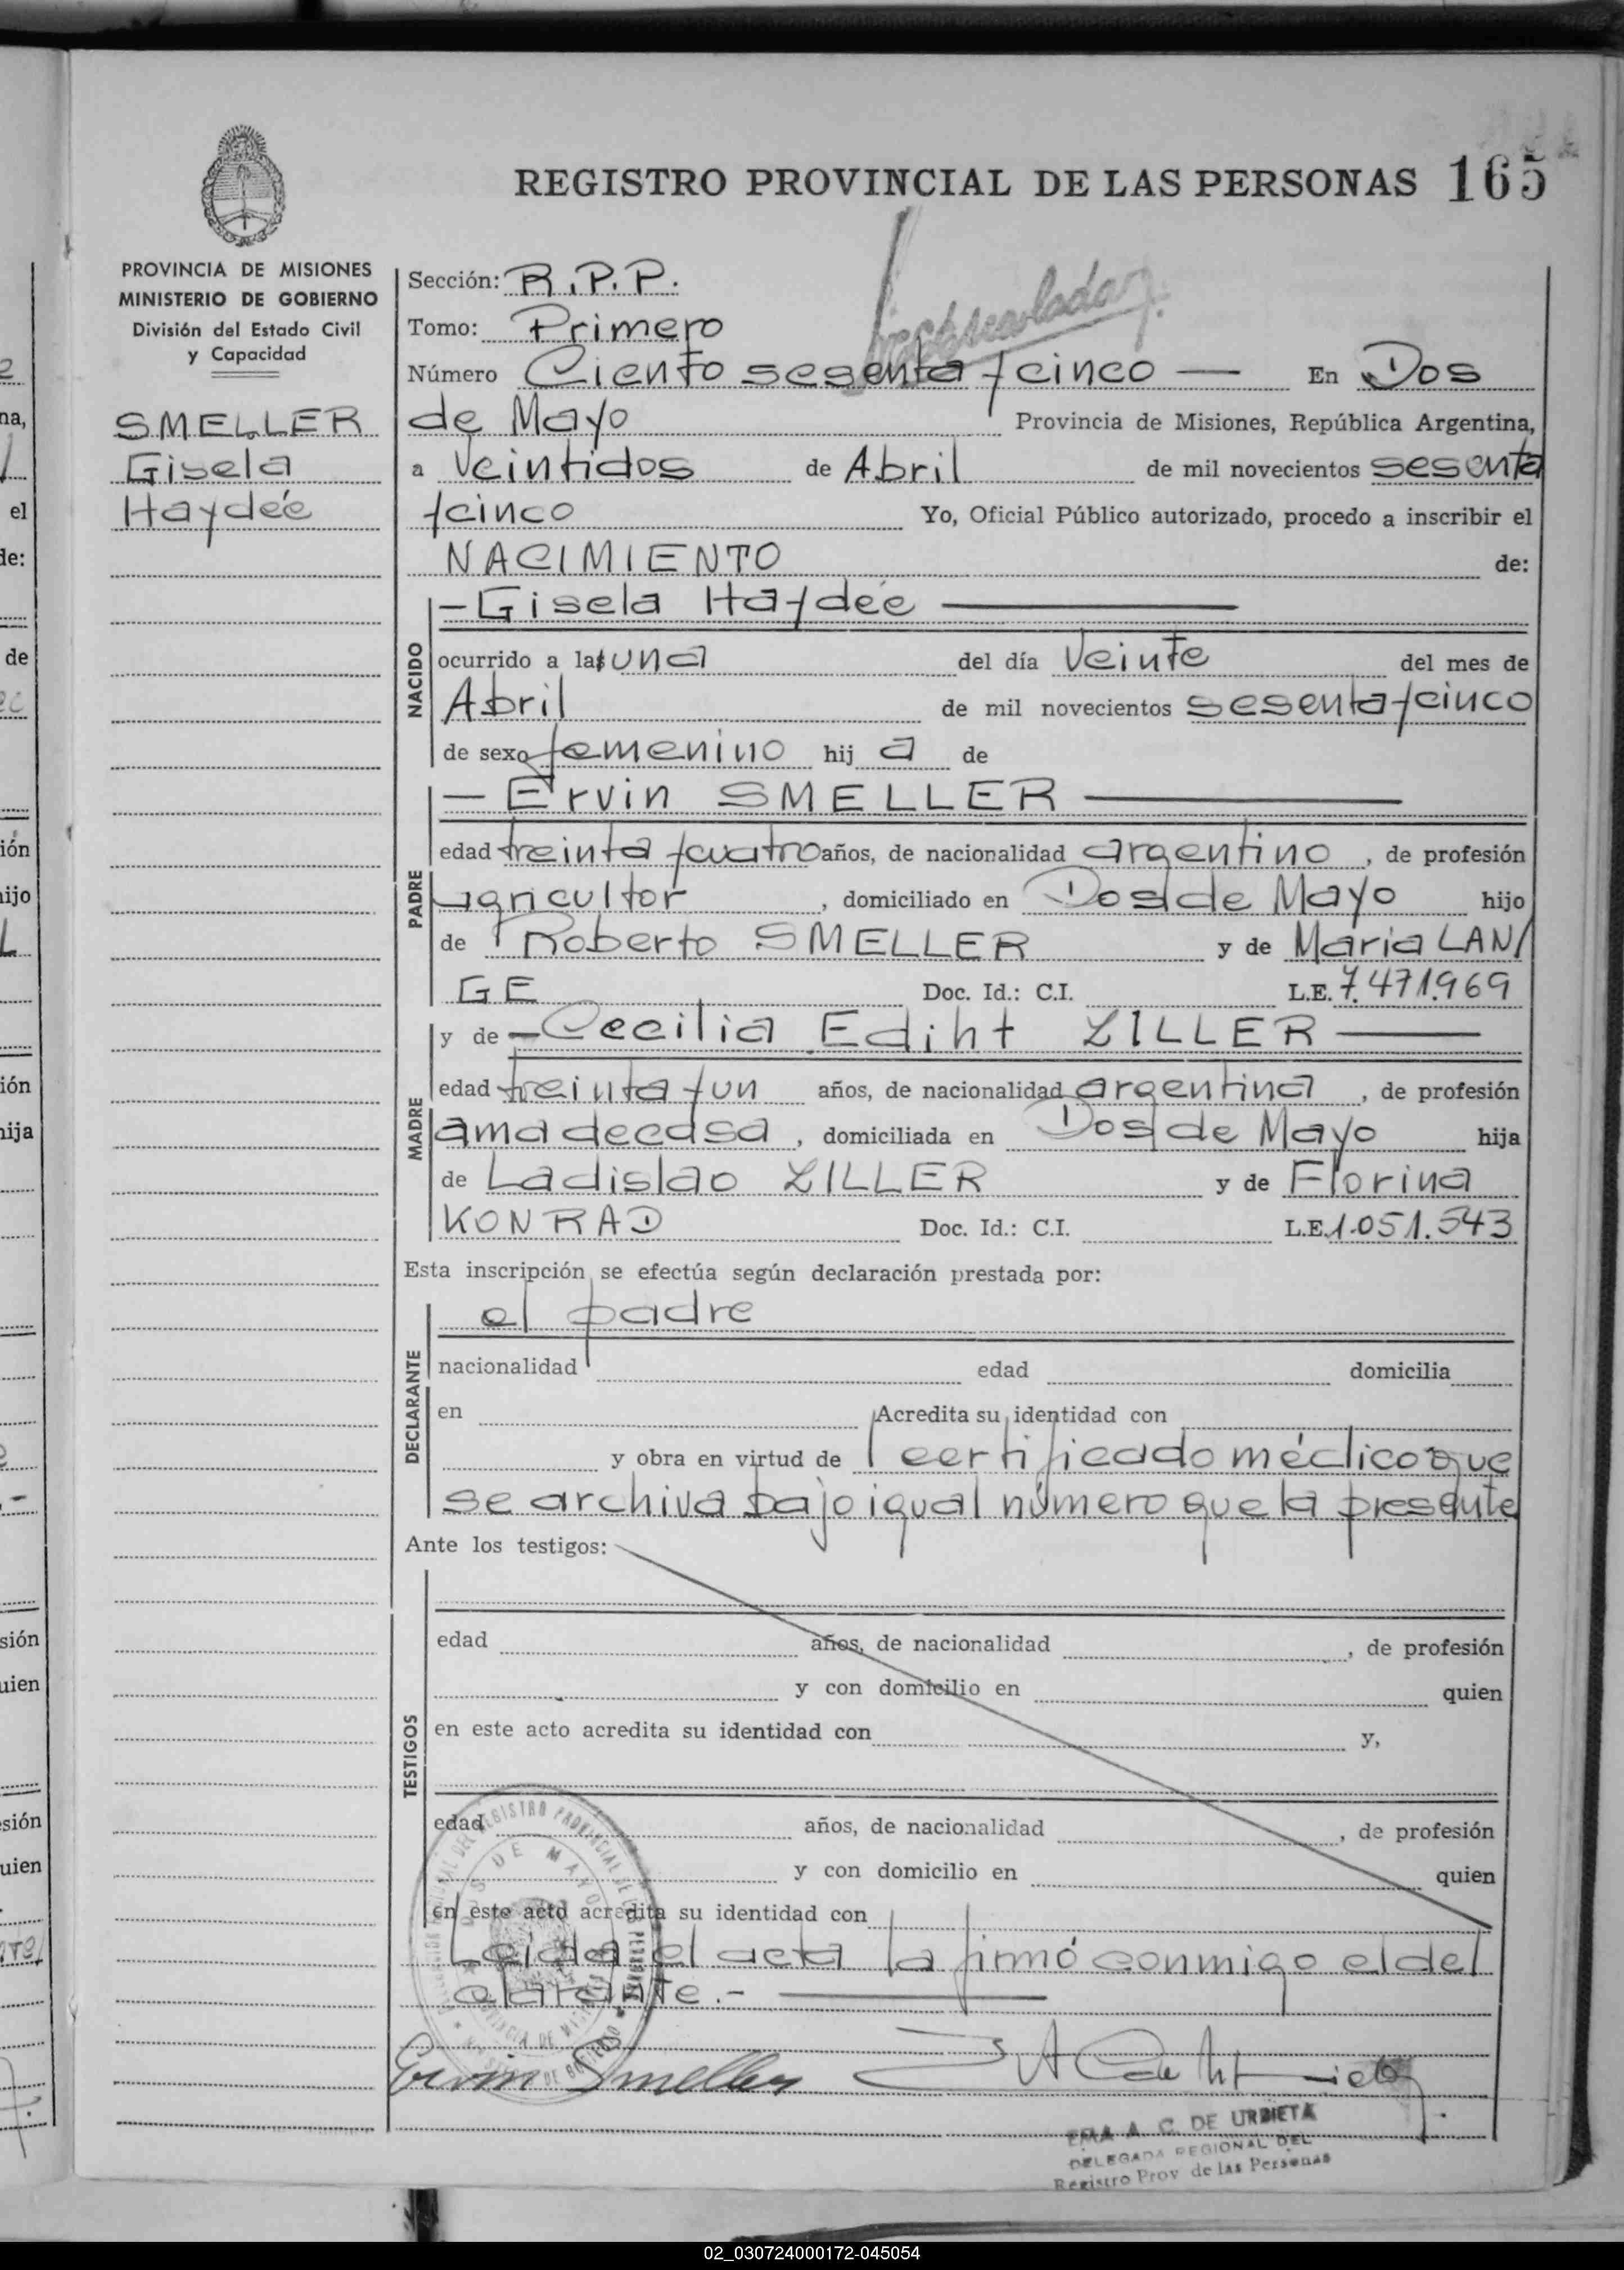 REGISTRO PROVINCIAL DE LAS PERSONAS 165
PROVINCIA DE MISIONES
MINISTERIO DE GOBIERNO
División del Estado Civil
y Capacidad
SMELLER
Gisela
Haydée
Sección: R.P.P.
Tomo: Primero
Número Ciento sesenta y cinco — En Dos
de Mayo Provincia de Misiones, República Argentina,
a Veintidos de Abril de mil novecientos sesenta
y cinco Yo, Oficial Público autorizado, procedo a inscribir el
NACIMIENTO de:
NACIDO
- Gisela Haydée —
ocurrido a las una del día Veinte del mes de
Abril de mil novecientos sesenta y cinco
de sexo femenino hij a de
PADRE
- Ervin SMELLER —
edad treinta y cuatro años, de nacionalidad argentino, de profesión
agricultor, domiciliado en Dos de Mayo hijo
de Roberto SMELLER y de Maria LAN/
GE Doc. Id.: C.I. L.E. 7.471.969
MADRE
y de - Cecilia Ediht ZILLER —
edad treinta y un años, de nacionalidad argentina, de profesión
ama de casa, domiciliada en Dos de Mayo hija
de Ladislao ZILLER y de Florina
KONRAD Doc. Id.: C.I. L.E. 1.051.543
Esta inscripción se efectúa según declaración prestada por:
DECLARANTE
el padre
nacionalidad edad domicilia
en Acredita su identidad con
y obra en virtud de certificado médico que
se archiva bajo igual número que la presente
Ante los testigos:
TESTIGOS
edad años, de nacionalidad , de profesión
y con domicilio en quien
en este acto acredita su identidad con y,
edad años, de nacionalidad , de profesión
y con domicilio en quien
en este acto acredita su identidad con
Leida el acta la firmó conmigo el del
clarante.- —
Ervin Smeller
EMA A. C. DE URBIETA
DELEGADA REGIONAL DEL
Registro Prov de las Personas
DOS DE MAYO
02_030724000172-045054